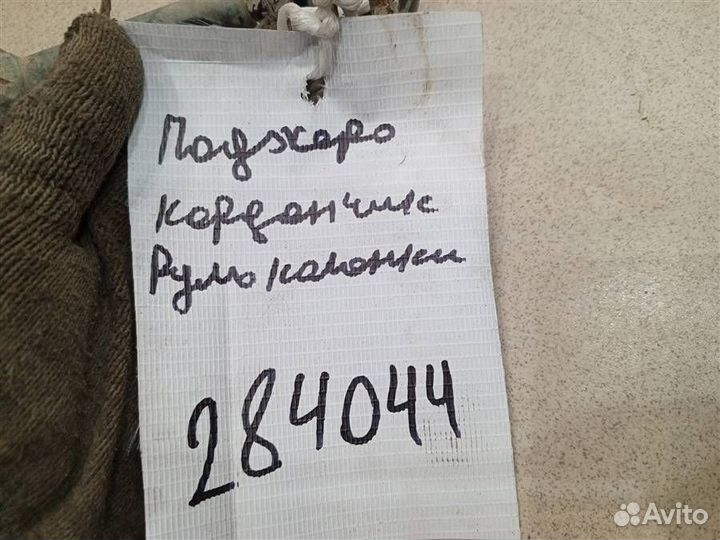 Паджеро
карданчик
Рулю колонки
284044
Avito